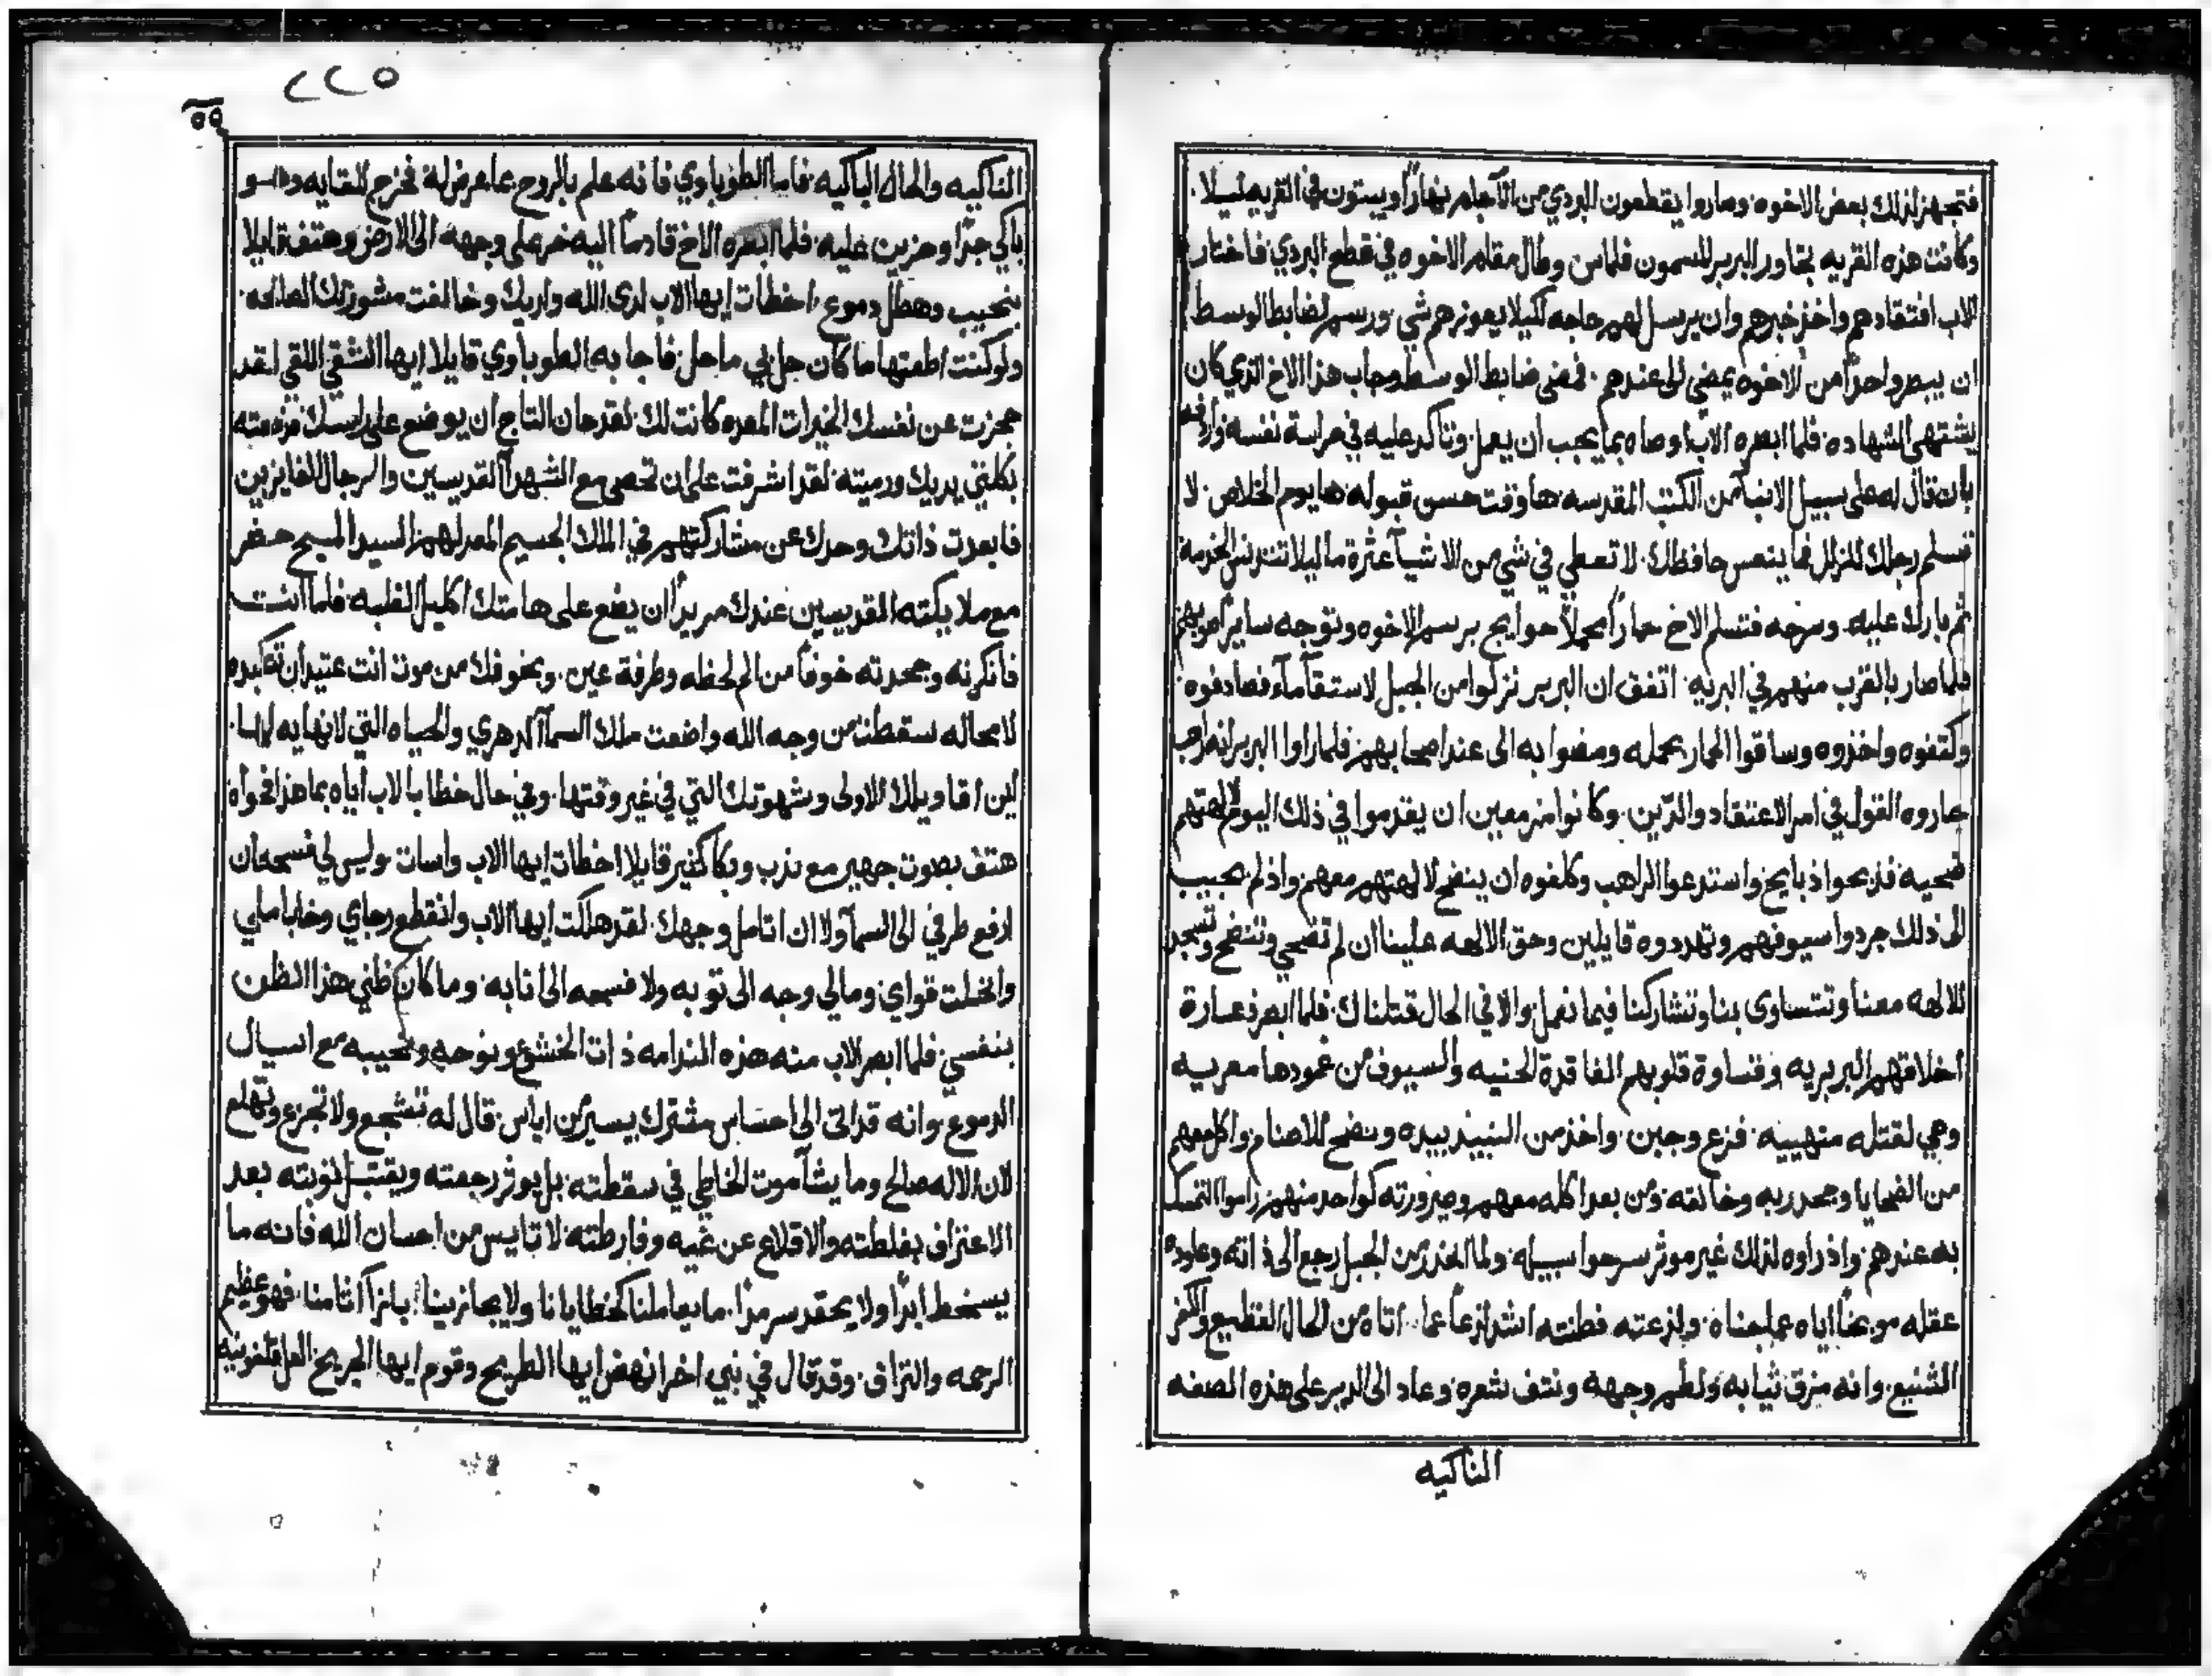 فتجهز لذلك بعض الاخوه وصاروا يقطعون البردي من الآجام نهاراً ويبيتون في القريه ليلا
وكانت هذه القريه تجاور البربر المسمون فلماس وطال مقام الاخوه في قطع البردي فاختار
الاب افتقادهم واخذ خبرهم وان يرسل لهم حاجه لكيلا يعوزهم شي ورسم لضابط الوسط
ان يبصر واحداً من الاخوه يمضي الى عندهم فمضى ضابط الوسط وجاب هذا الاخ الذي كان
يشتهي الشهاده فلما ابصره الاب اوصاه بما يجب ان يعمل وتأكد عليه في حراسة نفسه
بان قال له على سبيل الانبآ من الكتب المقدسه ها وقت حسن قبوله ها يوم الخلاص لا
تسلم رجلك للزلل فما ينعس حافظك لا تعطي في شي من الاشيآ عثرة ما ليلا تتدنس الخدمه
ثم بارك عليه وسرحه فتسلم الاخ حماراً محملاً حوايج برسم الاخوه وتوجه سايراً صوبهم
فلما صار بالقرب منهم في البريه اتفق ان البربر نزلوا من الجبل لاستقآ مآء فصادفوه
وكتفوه واخذوه وساقوا الحمار بحمله ومضوا به الى عند اصحابهم فلما راوا البربر انه راهب
جاروه القول في امر الاعتقاد والدين وكانوا مزمعين ان يقدموا في ذلك اليوم لآلهتهم
ضحيه فذبحوا ذبايح واستدعوا الراهب وكلفوه ان ينضح لالهتهم معهم واذ لم يجيب
الى ذلك جردوا سيوفهم وتهددوه قايلين وحق الالهه علينا ان لم تضحي وتنضح وتسجد
للالهه معنا وتتساوى بنا وتشاركنا فيما نعمل والا في الحال قتلناك فلما ابصر ذعارة
اخلاقهم البربريه وقساوة قلوبهم الفاقدة الحنيه والسيوف من غمودها معربيه
وهي لقتله متهييه فزع وجبن واخذ من النبيذ بيده ونضح للاصنام واكل معهم
من الضحايا وجحد ربه وخالقه ومن بعد اكله معهم وصيرورته كواحد منهم راموا التمسك
به عندهم واذ راوه لذلك غير موثر سرحوا سبيله ولما انحدر من الجبل رجع الى ذاته وعاوده
عقله موبخاً اياه على جناه ولذعته فطنته اشد لذعاً عما اتاه من الحال الفظيع والكفر
الشنيع وانه مزق ثيابه ولطم وجهه ونتف شعره وعاد الى الدير على هذه الصفه
الناكيه
٢٢٥
٥٥
الناكيه والحال الباكيه فاما الطوباوي فانه علم بالروح عما عرض له فخرج للقايه وهو
باكي جداً وحزين عليه فلما ابصره الاخ قادماً اليه خر على وجهه الى الارض وهتف قايلا
بنحيب وهطل دموع اخطات ايها الاب لدى الله ولديك وخالفت مشورتك الصالحه
ولو كنت اطعتها ما كان حل بي ما حل فاجابه الطوباوي قايلا ايها الشقي اللقي لقد
عجزت عن نفسك الخيرات المعده كانت لك لقد حان التاج ان يوضع على راسك فزممته
بكلتي يديك ورميته لقد اشرفت على ان تحصى مع الشهدآ القديسين والرجال الفايزين
فابعدت ذاتك وحدك عن مشاركتهم في الملك الجسيم المعد لهم السيد المسيح حضر
مع ملايكته القديسين عندك مريداً ان يضع على هامتك اكليل الغلبه فلما انت
فانكرته وجحدته خوفاً من الم لحظه وطرفة عين وبخوفك من موت انت عتيد ان تكابده
لا محاله سقطت من وجه الله واضعت ملك السمآ الدهري والحياه التي لا نهايه لها
اين اقاويلك الاولى وشهوتك التي في غير وقتها وفي حال خطاب الاب اياه بما هذا فحواه
هتف بصوت جهير مع ندب وبكا كثير قايلا اخطات ايها الاب واسات وليس لي فسحه ان
ارفع طرفي الى السمآ ولا ان اتامل وجهك لقد هلكت ايها الاب وانقطع رجاي وخاب املي
وانحلت قواي ومالي وجه الى توبه ولا فسحه الى انابه وما كان ظني هذا الظن
بنفسي فلما ابصر الاب منه هذه الندامه ذات الخشوع ونوحه ونحيبه مع اسيال
الدموع وانه قد اتى الى احساس مشترك بيسير من اياس قال له تشجع ولا تجزع وتهلع
لان الاله صالح وما يشآ موت الخاطي في سقطته بل يوثر رجعته ويقتبل توبته بعد
الاعتراف بغلطته والاقلاع عن غيه وفارطته لا تايس من احسان الله فانه ما
يسخط ابداً ولا يحقد سرمداً ما يعاملنا كخطايانا ولا يجازينا بازا اثامنا فهو عظيم
الرحمه والتراف وقد قال في نبي اخر انهض ايها الطريح وقوم ايها الجريح